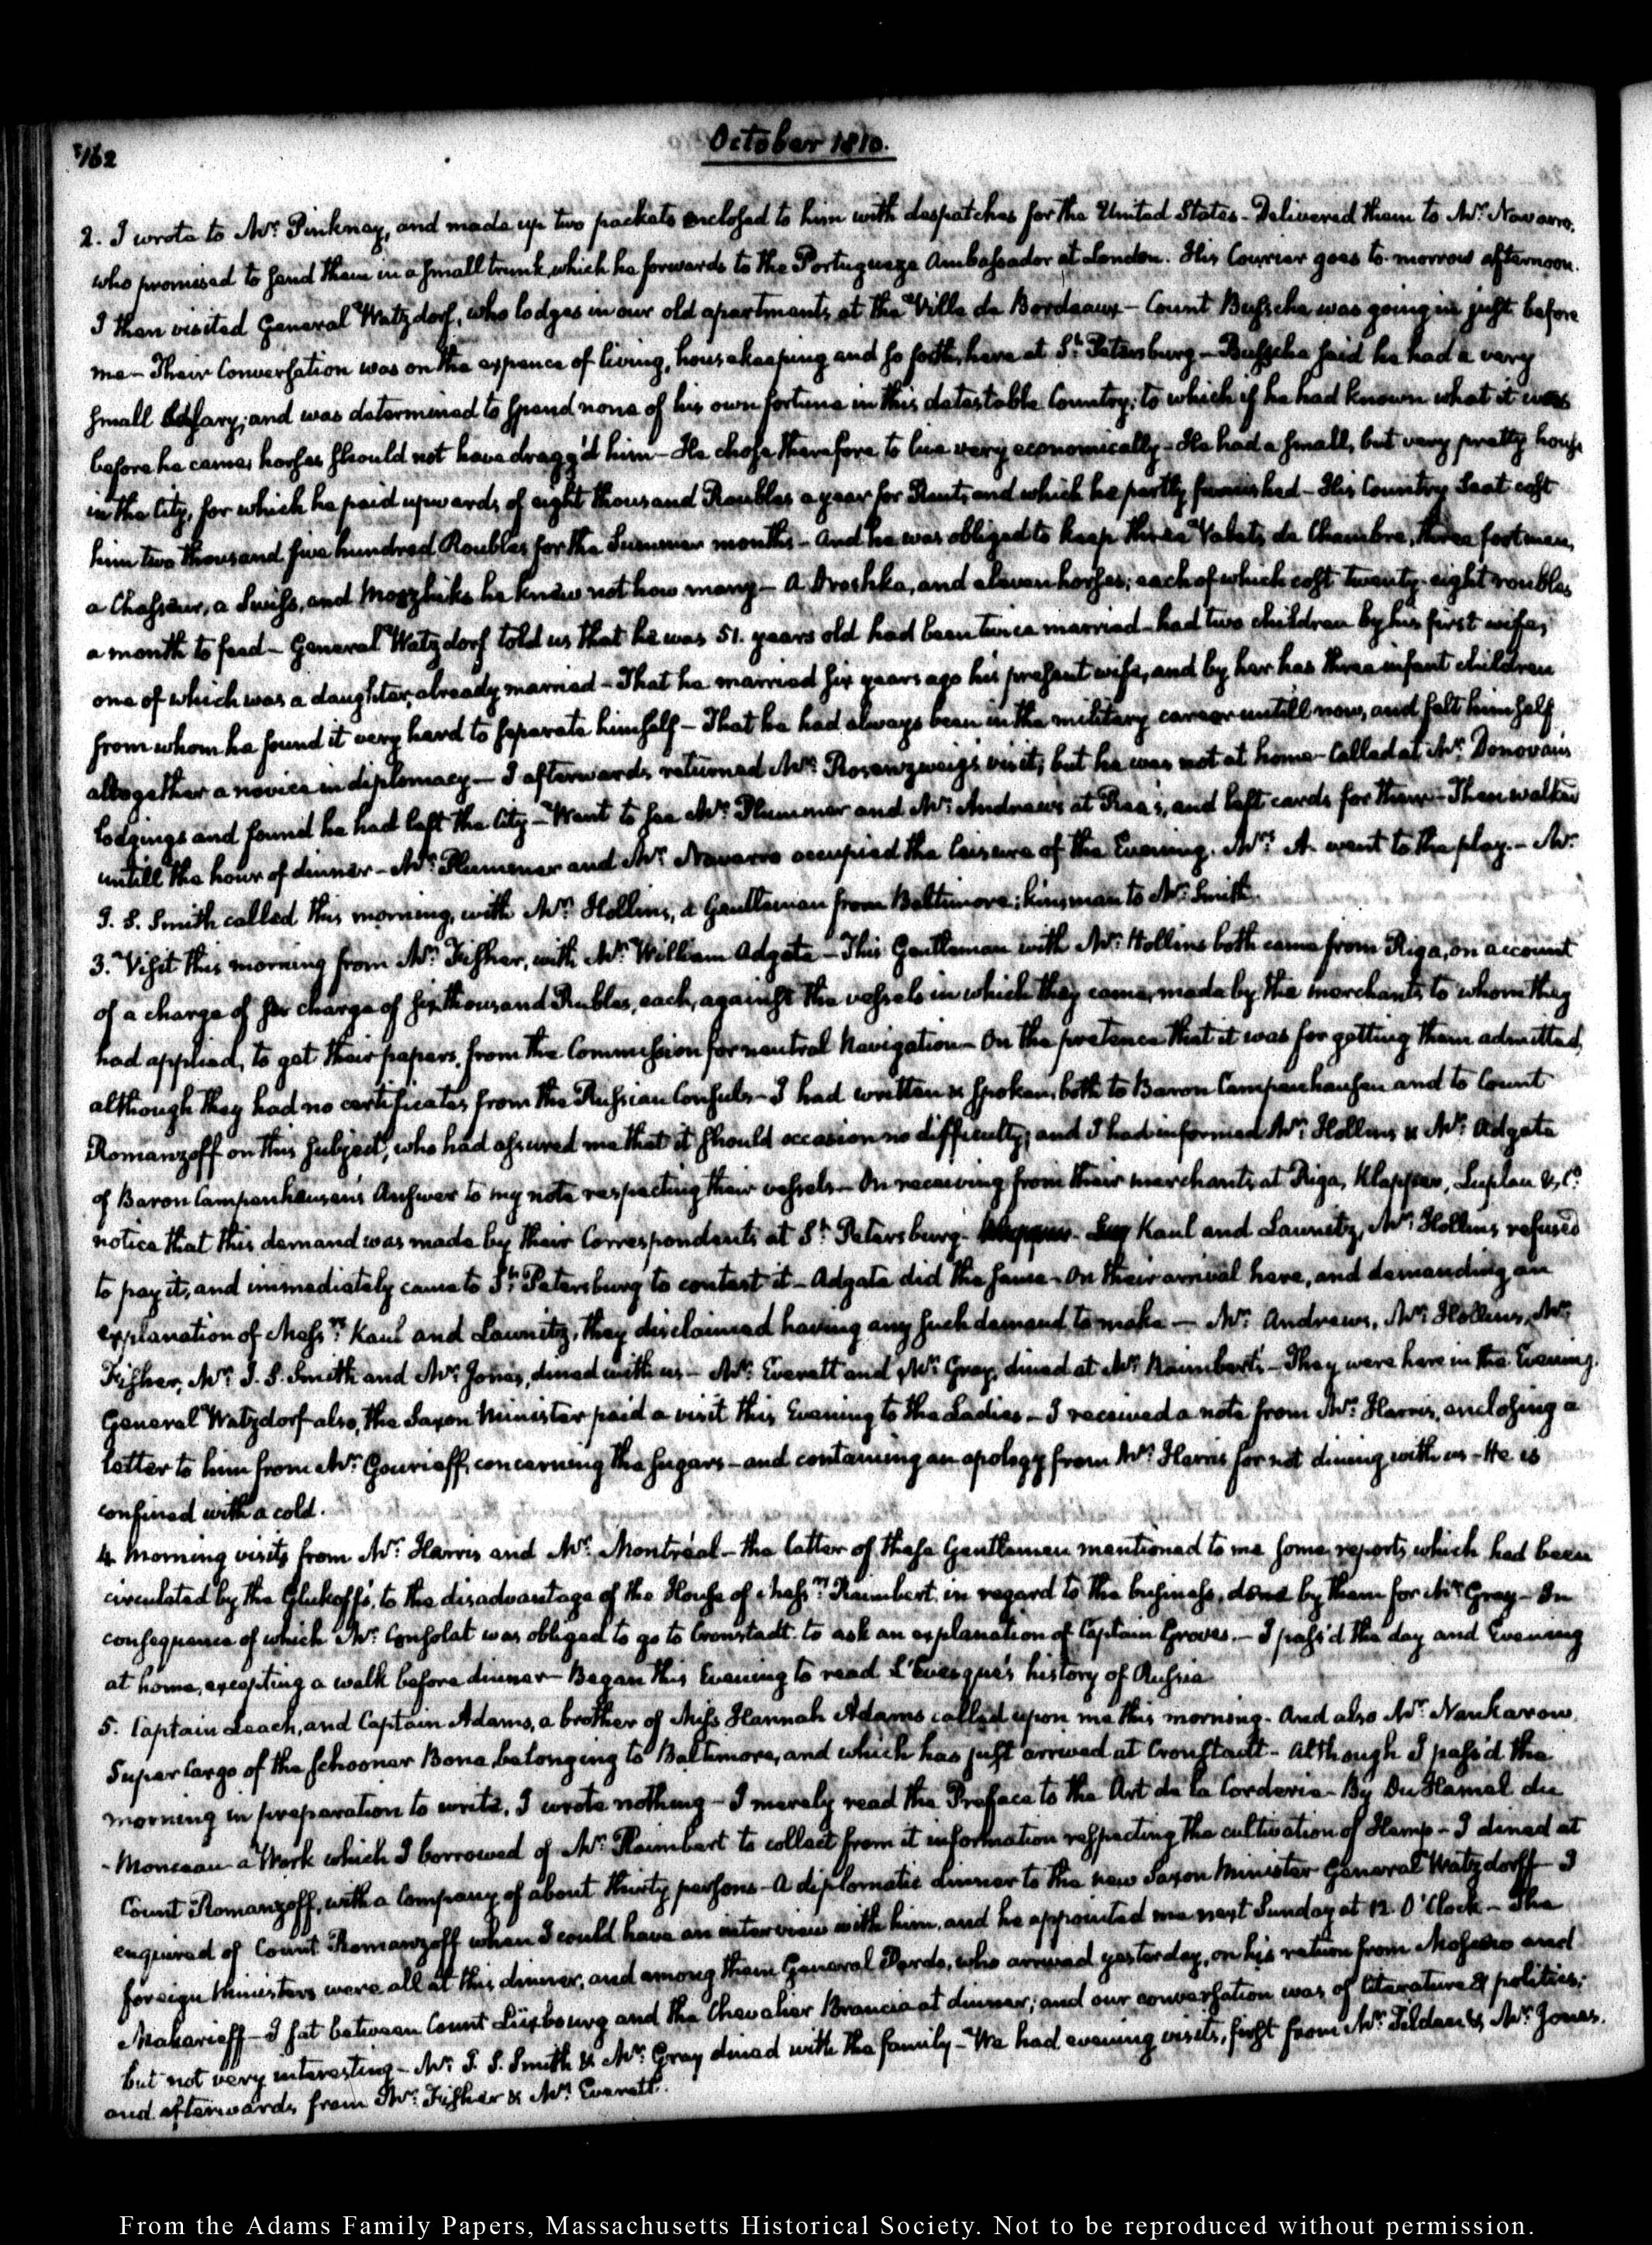 162
October 1810.
2. I wrote to Mr. Pinkney, and made up two packets enclosed to him with despatches for the United States - Delivered them to Mr. Navarro,
who promised to send them in a small trunk, which he forwards to the Portugueze Ambassador at London. His Courier goes to-morrow afternoon.
I then visited General Watzdorf, who lodges in our old apartments, at the Ville de Bordeaux - Count Bussche was going in just before
me - Their Conversation was on the expence of living, housekeeping and so forth, here at St. Petersburg - Bussche said he had a very
small salary; and was determined to spend none of his own fortune in this detestable Country; to which if he had known what it was
before he came, horses should not have dragg'd him - He chose therefore to live very economically - He had a small, but very pretty house
in the City, for which he paid upwards of eight thousand Roubles a year for Rent, and which he partly furnished - His Country Seat cost
him two thousand five hundred Roubles for the Summer months - And he was obliged to keep three Valets de Chambre, three footmen,
a Chasseur, a Swiss, and Mozhiks he knew not how many - A Droshka, and eleven horses; each of which cost twenty-eight roubles
a month to feed - General Watzdorf told us that he was 51. years old had been twice married - had two children by his first wife,
one of which was a daughter, already married - That he married six years ago his present wife, and by her has three infant children
from whom he found it very hard to separate himself - That he had always been in the military career untill now, and felt himself
altogether a novice in diplomacy - I afterwards returned Mr. Rosenzweig's visit; but he was not at home - Called at Mr. Donovan's
lodgings and found he had left the City - Went to see Mr. Plummer and Mr. Andrews at Rea's, and left cards for them - Then walked
untill the hour of dinner - Mr. Plummer and Mr. Navarro occupied the leisure of the Evening. Mrs. A. went to the play. - Mr.
J. S. Smith called this morning, with Mr. Hollins, a Gentleman from Baltimore; kinsman to Mr. Smith.
3. Visit this morning from Mr. Fisher, with Mr. William Adgate - This Gentleman with Mr. Hollins both came from Riga, on account
of a charge of six charge of six thousand Rubles, each, against the vessels in which they came, made by the merchants to whom they
had applied, to get their papers, from the Commission for neutral Navigation - On the pretence that it was for getting them admitted,
although they had no certificates from the Russian Consuls - I had written & spoken, both to Baron Campenhausen and to Count
Romanzoff on this subject, who had assured me that it should occasion no difficulty; and I had informed Mr. Hollins & Mr. Adgate
of Baron Campenhausen's Answer to my note respecting their vessels - On receiving from their merchants at Riga, Luplau & Co.
notice that this demand was made by their Correspondents at St. Petersburg - Kaul and Launitz, Mr. Hollins refused
to pay it, and immediately came to St. Petersburg to contest it - Adgate did the same - On their arrival here, and demanding an
explanation of Messrs. Kaul and Launitz, they disclaimed having any such demand to make - Mr. Andrews, Mr. Hollins, Mr.
Fisher, Mr. J. S. Smith and Mr. Jones, dined with us - Mr. Everett and Mr. Gray, dined at Mr. Raimbert's - They were here in the Evening.
General Watzdorf also, the Saxon Minister paid a visit this Evening to the Ladies - I received a note from Mr. Harris, enclosing a
letter to him from Mr. Gourieff, concerning the sugars - and containing an apology from Mr. Harris for not dining with us - He is
confined with a cold.
4. Morning visits from Mr. Harris and Mr. Montréal - the latter of these Gentlemen mentioned to me some reports, which had been
circulated by the Glukoff's, to the disadvantage of the House of Messrs. Raimbert, in regard to the business, done by them for Mr. Gray - In
consequence of which Mr. Consolat was obliged to go to Cronstadt to ask an explanation of Captain Groves. - I pass'd the day and Evening
at home, excepting a walk before dinner - Began this Evening to read L'Evesque's history of Russia
5. Captain Leach, and Captain Adams, a brother of Miss Hannah Adams called upon me this morning. And also Mr. Nankarrow,
Super Cargo of the schooner Bona, belonging to Baltimore, and which has just arrived at Cronstadt - Although I pass'd the
morning in preparation to write, I wrote nothing - I merely read the Preface to the Art de la Corderie - By Du Hamel du
Monceau - a Work which I borrowed of Mr. Raimbert to collect from it information respecting the cultivation of Hemp - I dined at
Count Romanzoff, with a Company of about thirty persons - A diplomatic dinner to the new Saxon Minister General Watzdorff - I
enquired of Count Romanzoff when I could have an interview with him, and he appointed me next Sunday at 12. O'Clock - The
foreign Ministers were all at this dinner, and among them General Pardo, who arrived yesterday, on his return from Moscow and
Makarieff - I sat between Count Lüxbourg and the Chevalier Brancia at dinner; and our conversation was of literature & politics;
but not very interesting - Mr. J. S. Smith & Mr. Gray dined with the family - We had evening visits, first from Mr. Felden & Mr. Jones,
and afterwards from Mr. Fisher & Mr. Everett.
From the Adams Family Papers, Massachusetts Historical Society. Not to be reproduced without permission.